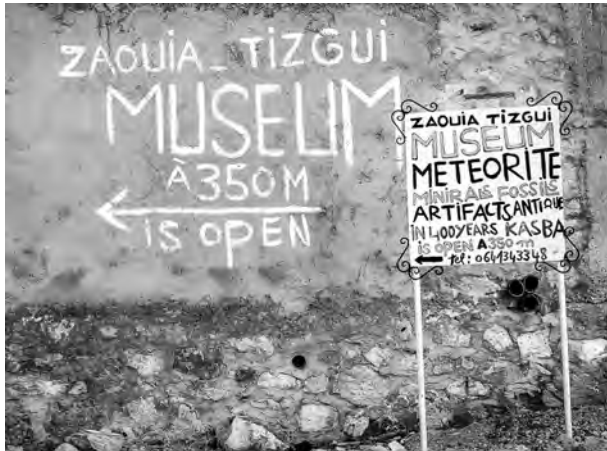 ZAOUIA_TIZGUI
MUSEUM
À 350M
IS OPEN
ZAOUIA TIZGUI
MUSEUM
METEORITE
MINIRALE FOSSILE
ARTIFACTS ANTIQUE
IN 400YEARS KASBA
iS OPEN A 350 m
tel: 0641343348